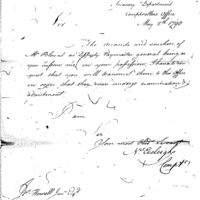 Treasury Department
Comptrollers Office
May 8th 1790
Sir
The accounts and vouchers of
Mr Pierce as Deputy Paymaster general being as
you inform me in your possession, I have to re-
quest that you will transmit them to this Office
in order that they may undergo examination &
adjustment
I am
Sir
Your most Obt Servant
Compt
Howell Jun Esqr